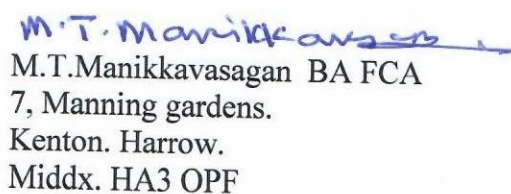 M.T. Manikkavasagan
M.T.Manikkavasagan BA FCA
7, Manning gardens.
Kenton. Harrow.
Middx. HA3 OPF